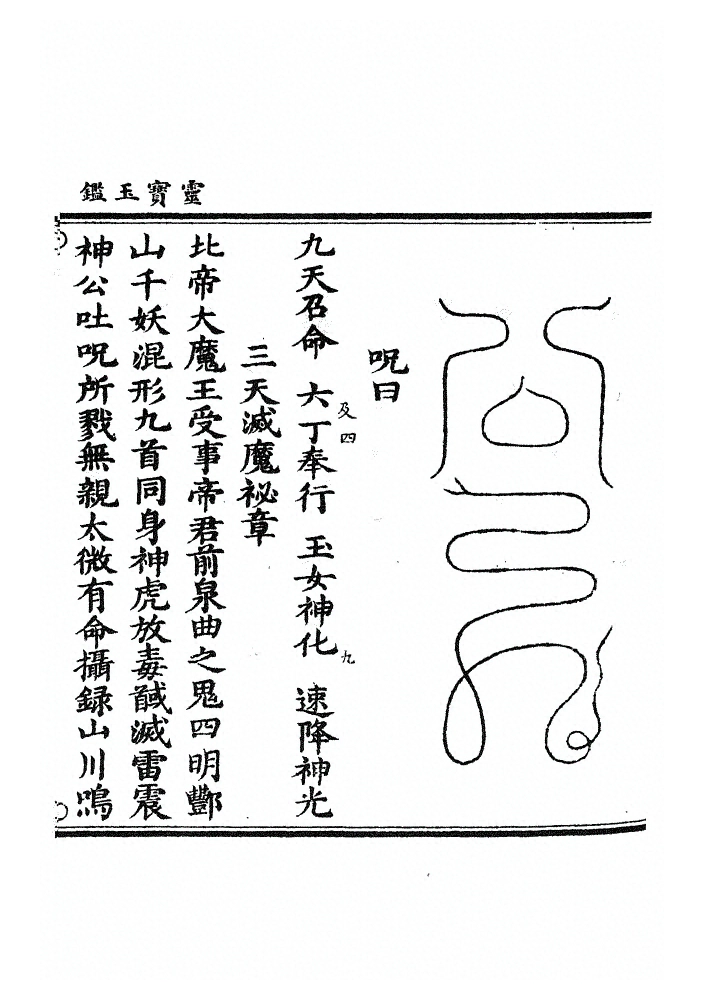 靈寶玉鑑
呪曰
九天召命　六丁奉行　玉女神化　速降神光
及四
九
三天滅魔祕章
北帝大魔王受事帝君前泉曲之鬼四明酆
山千妖混形九首同身神虎放毒馘滅雷震
神公吐呪所戮無親太微有命攝錄山川鳴